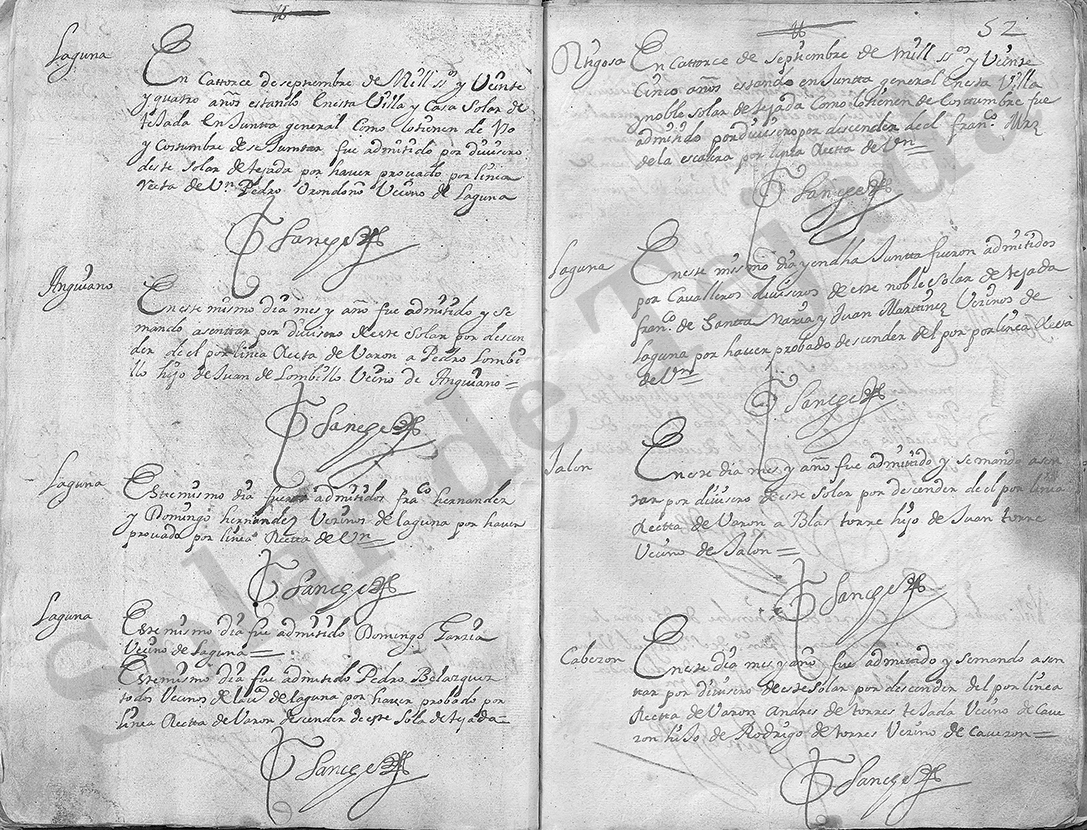 Laguna
En Catorce de septiembre de Mill ss.os y Veinte
y quatro años estando Enesta Villa y Casa Solar de
tejada En Juntta general como lo tienen de Vso
y Costumbre de se Juntar fue admitido por diuisero
deste Solar de tejada por hauer prouado por linia
recta de V.n Pedro Vrondoño Vecino de Laguna
Sanz
Anguiano
Eneste mismo dia mes y año fue admitido y se
mando asentar por diuisero de este Solar por descen
der de el por linia Recta de Varon a Pedro Lombi
llo hijo de Juan de Lombillo Vecino de Anguiano=
Laguna
Este mismo dia fueron admitidos fran.co hernandez
y Domingo hernandez Vecinos de laguna por hauer
prouado por linea Recta de V.n
Laguna
Este mismo dia fue admitido Domingo Garzia
Vecino de Laguna=
Este mismo dia fue admitido Pedro Belazquez
todos Vecinos de laguna por hauer probado por
linea Recta de Varon descender de este Sola de tejada=
52
Ortigosa
En Cattorce de septiembre de Mill ss.os y Veinte
Cinco años estando en Juntta general Enesta Villa
y noble solar de tejada Como lo tienen de Costumbre fue
admitido por diuisero por descender de el fran.co Mrz
de la escalera por linia Recta de V.n
Laguna
Eneste mismo dia y en dha Juntta fueron admitidos
por Caualleros diuiseros de este noble Solar de tejada
fran.co de Santta Maria y Juan Martinez Vecinos de
Laguna por hauer probado descender del por por linea Recta
de V.on
Jalon
Eneste dia mes y año fue admitido y se mando asen
tar por diuisero de este Solar por descender de el por linia
Recta de Varon a Blas torre hijo de Juan torre
Vecino de Jalon=
Cabezon
Eneste dia mes y año fue admitado y semando asen
trar por diuisero de este Solar por descender del por linea
Recta de Varon Andres de torres tejada Vecino de Caue
zon hijo de Rodrigo de torres Vecino de Caueron=
Solar de Tejada